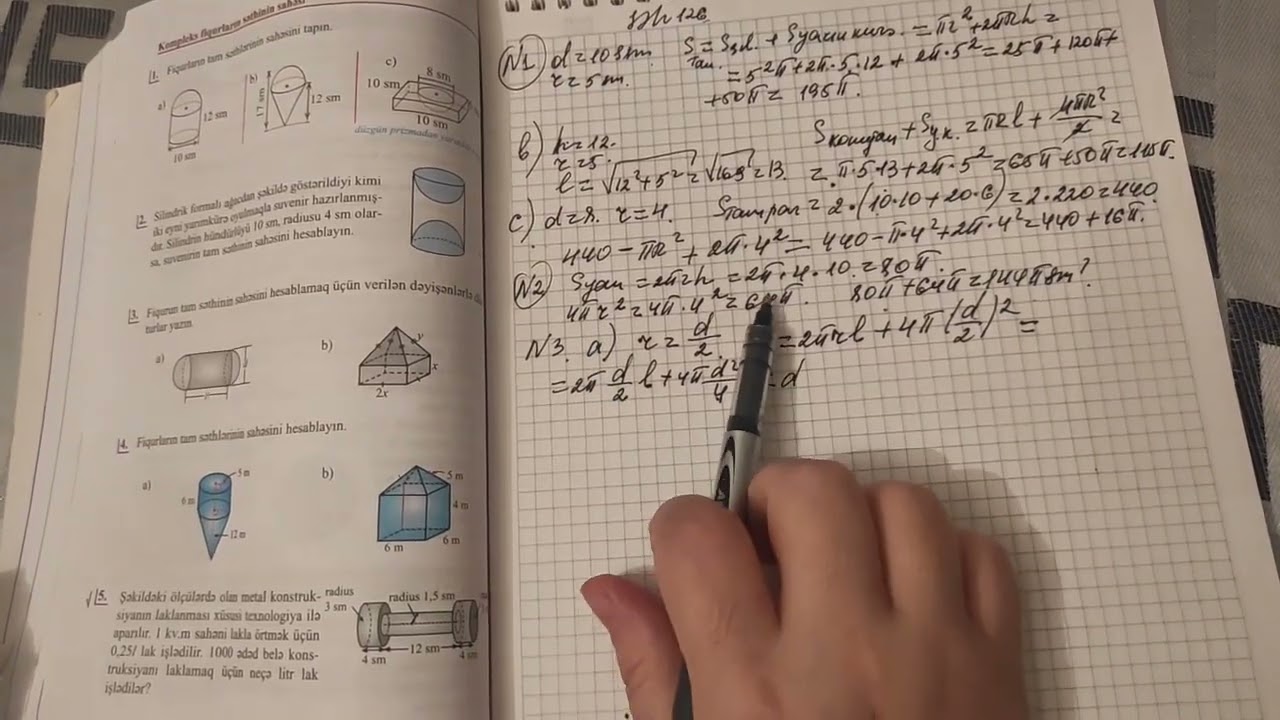 Kompleks fiqurların səthinin sahəsi
1. Fiqurların tam səthlərinin sahəsini tapın.
a)
12 sm
10 sm
b)
17 sm
12 sm
c)
8 sm
10 sm
10 sm
düzgün prizmadan
2. Silindrik formalı ağacdan şəkildə göstərildiyi kimi
iki eyni yarımkürə oyulmaqla suvenir hazırlanmış-
dır. Silindrin hündürlüyü 10 sm, radiusu 4 sm olar-
sa, suvenirin tam səthinin sahəsini hesablayın.
3. Fiqurun tam səthinin sahəsini hesablamaq üçün verilən dəyişənlərlə
turlar yazın.
a)
b)
y
x
2x
4. Fiqurların tam səthlərinin sahəsini hesablayın.
a)
5 m
6 m
12 m
b)
5 m
4 m
6 m
6 m
5. Şəkildəki ölçülərdə olan metal konstruk-
siyanın laklanması xüsusi texnologiya ilə
aparılır. 1 kv.m sahəni lakla örtmək üçün
0,25l lak işlədilir. 1000 ədəd belə kons-
truksiyanı laklamaq üçün neçə litr lak
işlədilər?
radius
3 sm
radius 1,5 sm
4 sm
12 sm
4 sm
126
N1 d=10sm
r=5m.
= πr²+2πrh=
=5²π+2π·5·12+2π·5²=25π+120π+
+50π=195π.
b) h=12.
r=5.
l=√12²+5²=√169=13.
=πRl+4πR²/2=
=π·5·13+2π·5²=65π+50π=115π.
c) d=8. r=4.
=2·(10·10+20·6)=2·220=440.
440-πr²+2π·4²=440-π·4²+2π·4²=440+16π.
N2 Syan=2πrh=2π·4·10=80π.
4πr²=4π·4²=64π. 80π+64π=144πsm²
N3. a) r=d/2. =2πrl+4π(d/2)²=
=2π d/2 l+4π d²/4 = d